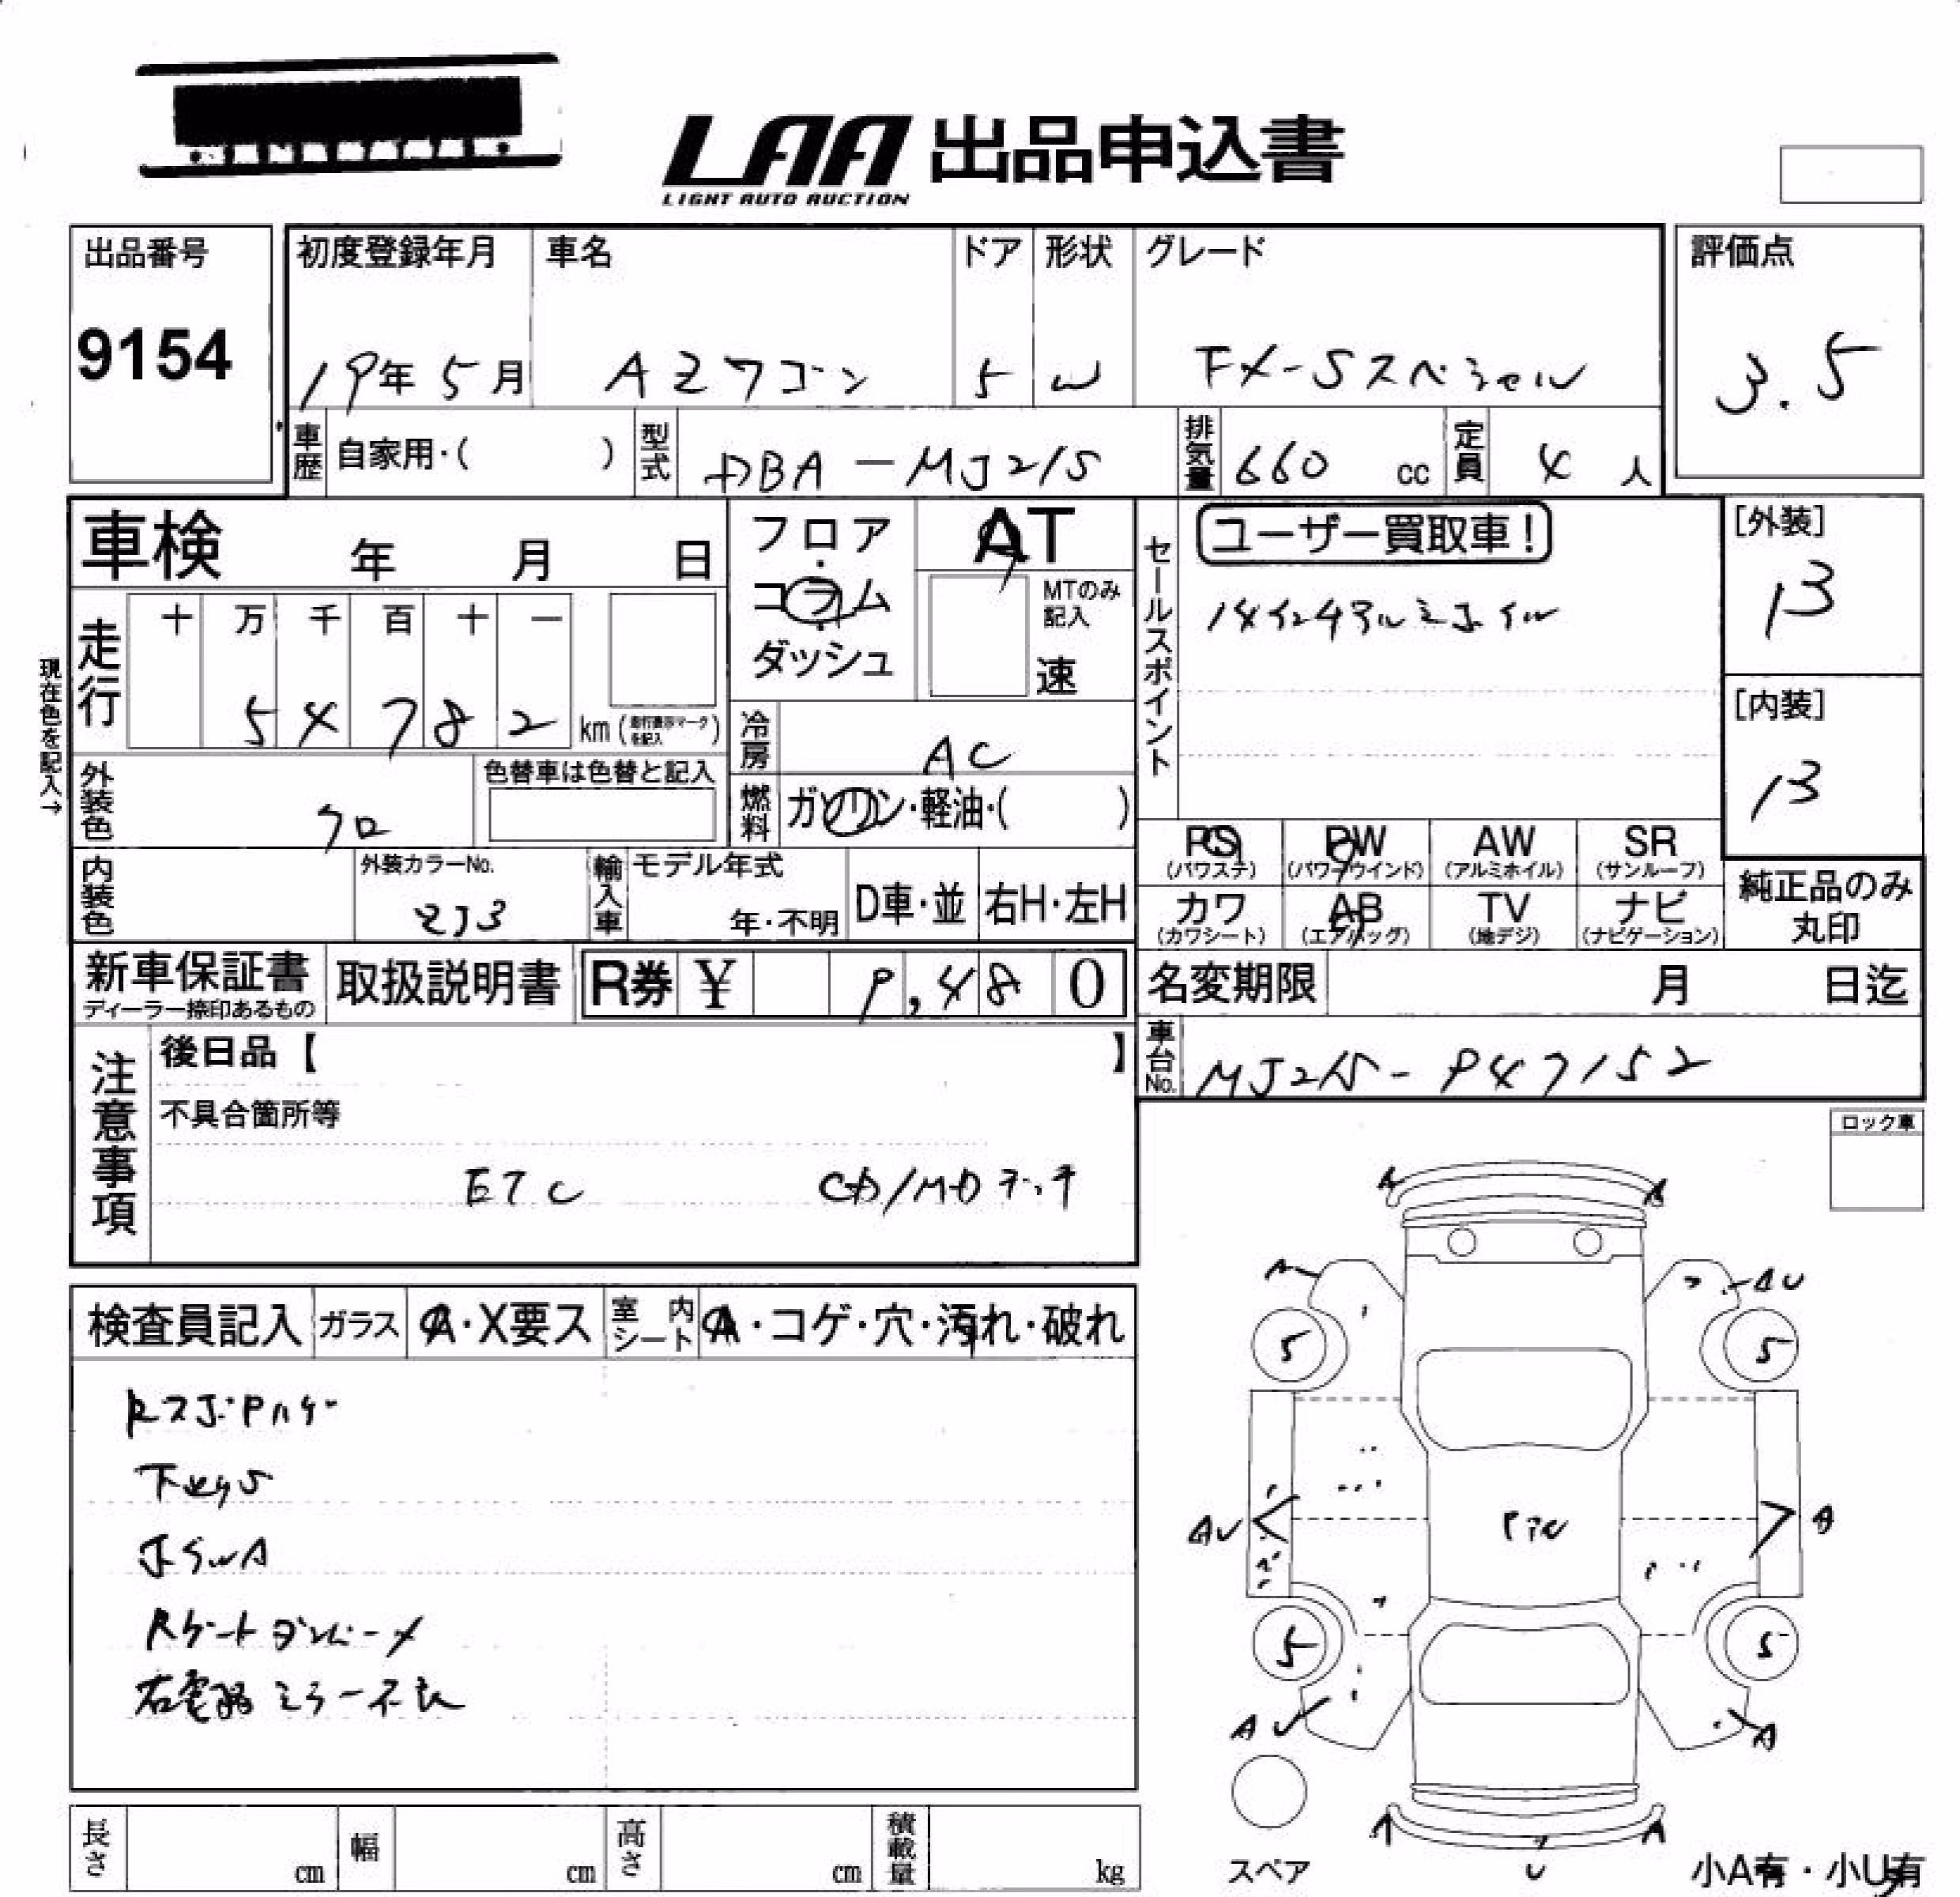 LAA 出品申込書
LIGHT AUTO AUCTION
出品番号
9154
初度登録年月 車名 ドア 形状 グレード
19年 5月 AZワゴン 5 W FX-Sスペシャル
評価点
3.5
車歴 自家用・( ) 型式 DBA-MJ21S 排気量 660 cc 定員 4 人
車検 年 月 日
フロア
コラム
ダッシュ
AT
MTのみ記入
速
セールスポイント
ユーザー買取車!
14インチアルミホイル
[外装]
13
[内装]
13
現在色を記入→
走行 十 万 千 百 十 一
5 4 7 8 2 km (走行表示マークを記入)
冷房 AC
外装色 クロ
色替車は色替と記入
燃料 ガソリン・軽油・( )
内装色
外装カラーNo.
ZJ3
輸入車 モデル年式
年・不明 D車・並 右H・左H
PS (パワステ) PW (パワーウインド) AW (アルミホイル) SR (サンルーフ)
カワ (カワシート) AB (エアバッグ) TV (地デジ) ナビ (ナビゲーション)
純正品のみ
丸印
新車保証書
ディーラー捺印あるもの
取扱説明書
R券 ¥ 9,480
名変期限 月 日迄
車台No. MJ21S-P47152
注意事項
後日品【 】
不具合箇所等
ETC CD/MDデッキ
ロック車
検査員記入 ガラス A・X要ス 室内シート A・コゲ・穴・汚れ・破れ
下廻りS
Rゲートダンパーメ
右電格ミラー不良
A A
A AU
5 5
AU A
5 5
AU A
A U A
スペア
小A有・小U有
長さ cm 幅 cm 高さ cm 積載量 kg